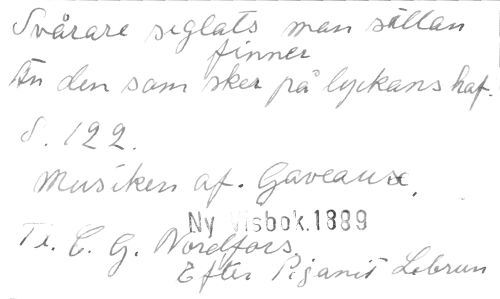 Svårare seglats man sällan
finner
Än den som sker på lyckans haf.
S. 122.
Musiken af. Gaveaux.
Ny Visbok.1889
Ti. C. G. Nordfors
Efter Piganit Lebrun